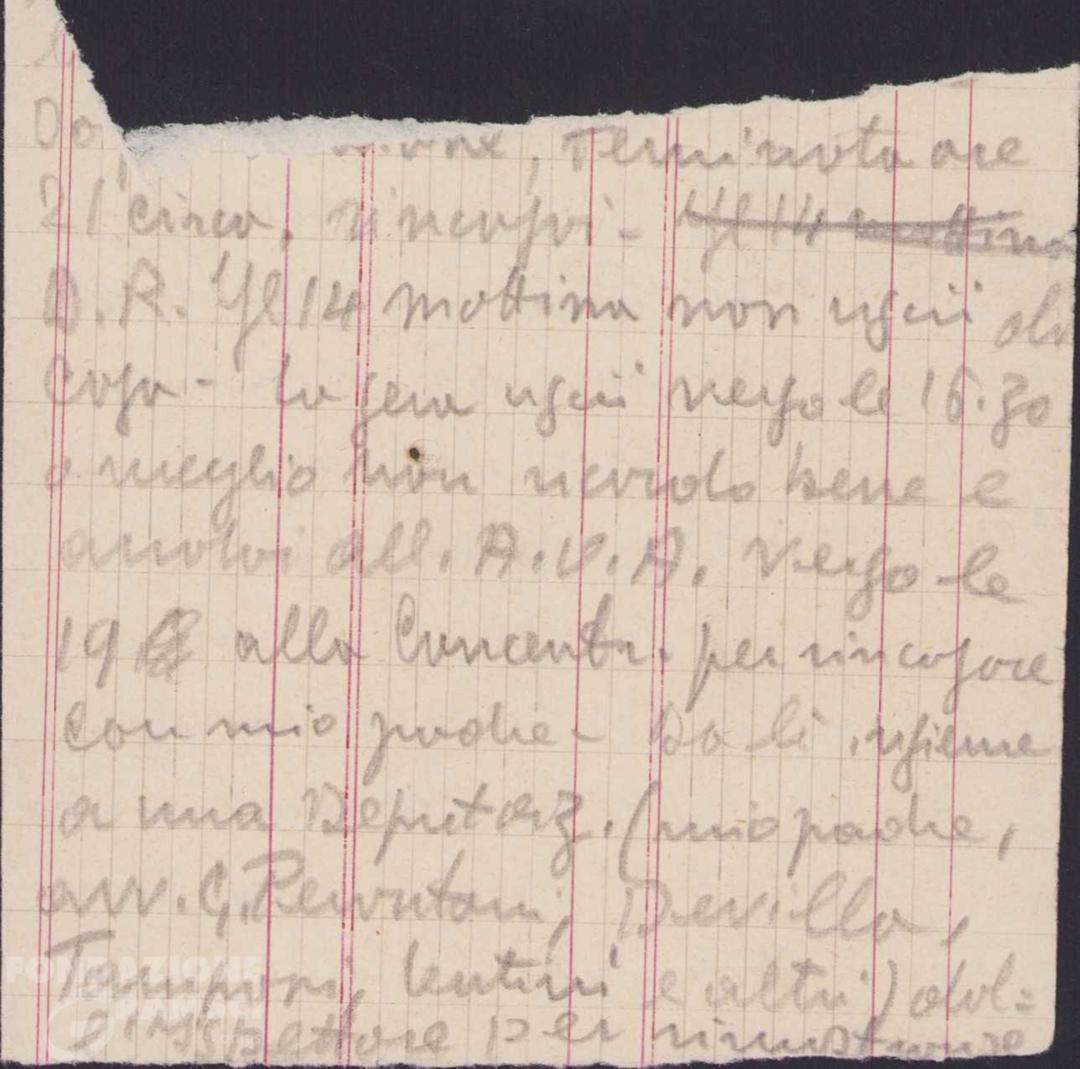 terminata ore
21 circa, rincasai - Il 14 mattina
D.R. Il 14 mattina non uscii di
casa - la sera uscii verso le 16.30
o meglio non ricordo bene e
andai all'A.V.A. verso le
19 alla Concentr. per rincasare
con mio padre - Da lì insieme
a una Deputaz. (mio padre,
avv. G. Devilla,
Tamponi, Lentini e altri) dal=
l'Ispettore per rimostranze
FONDAZIONE